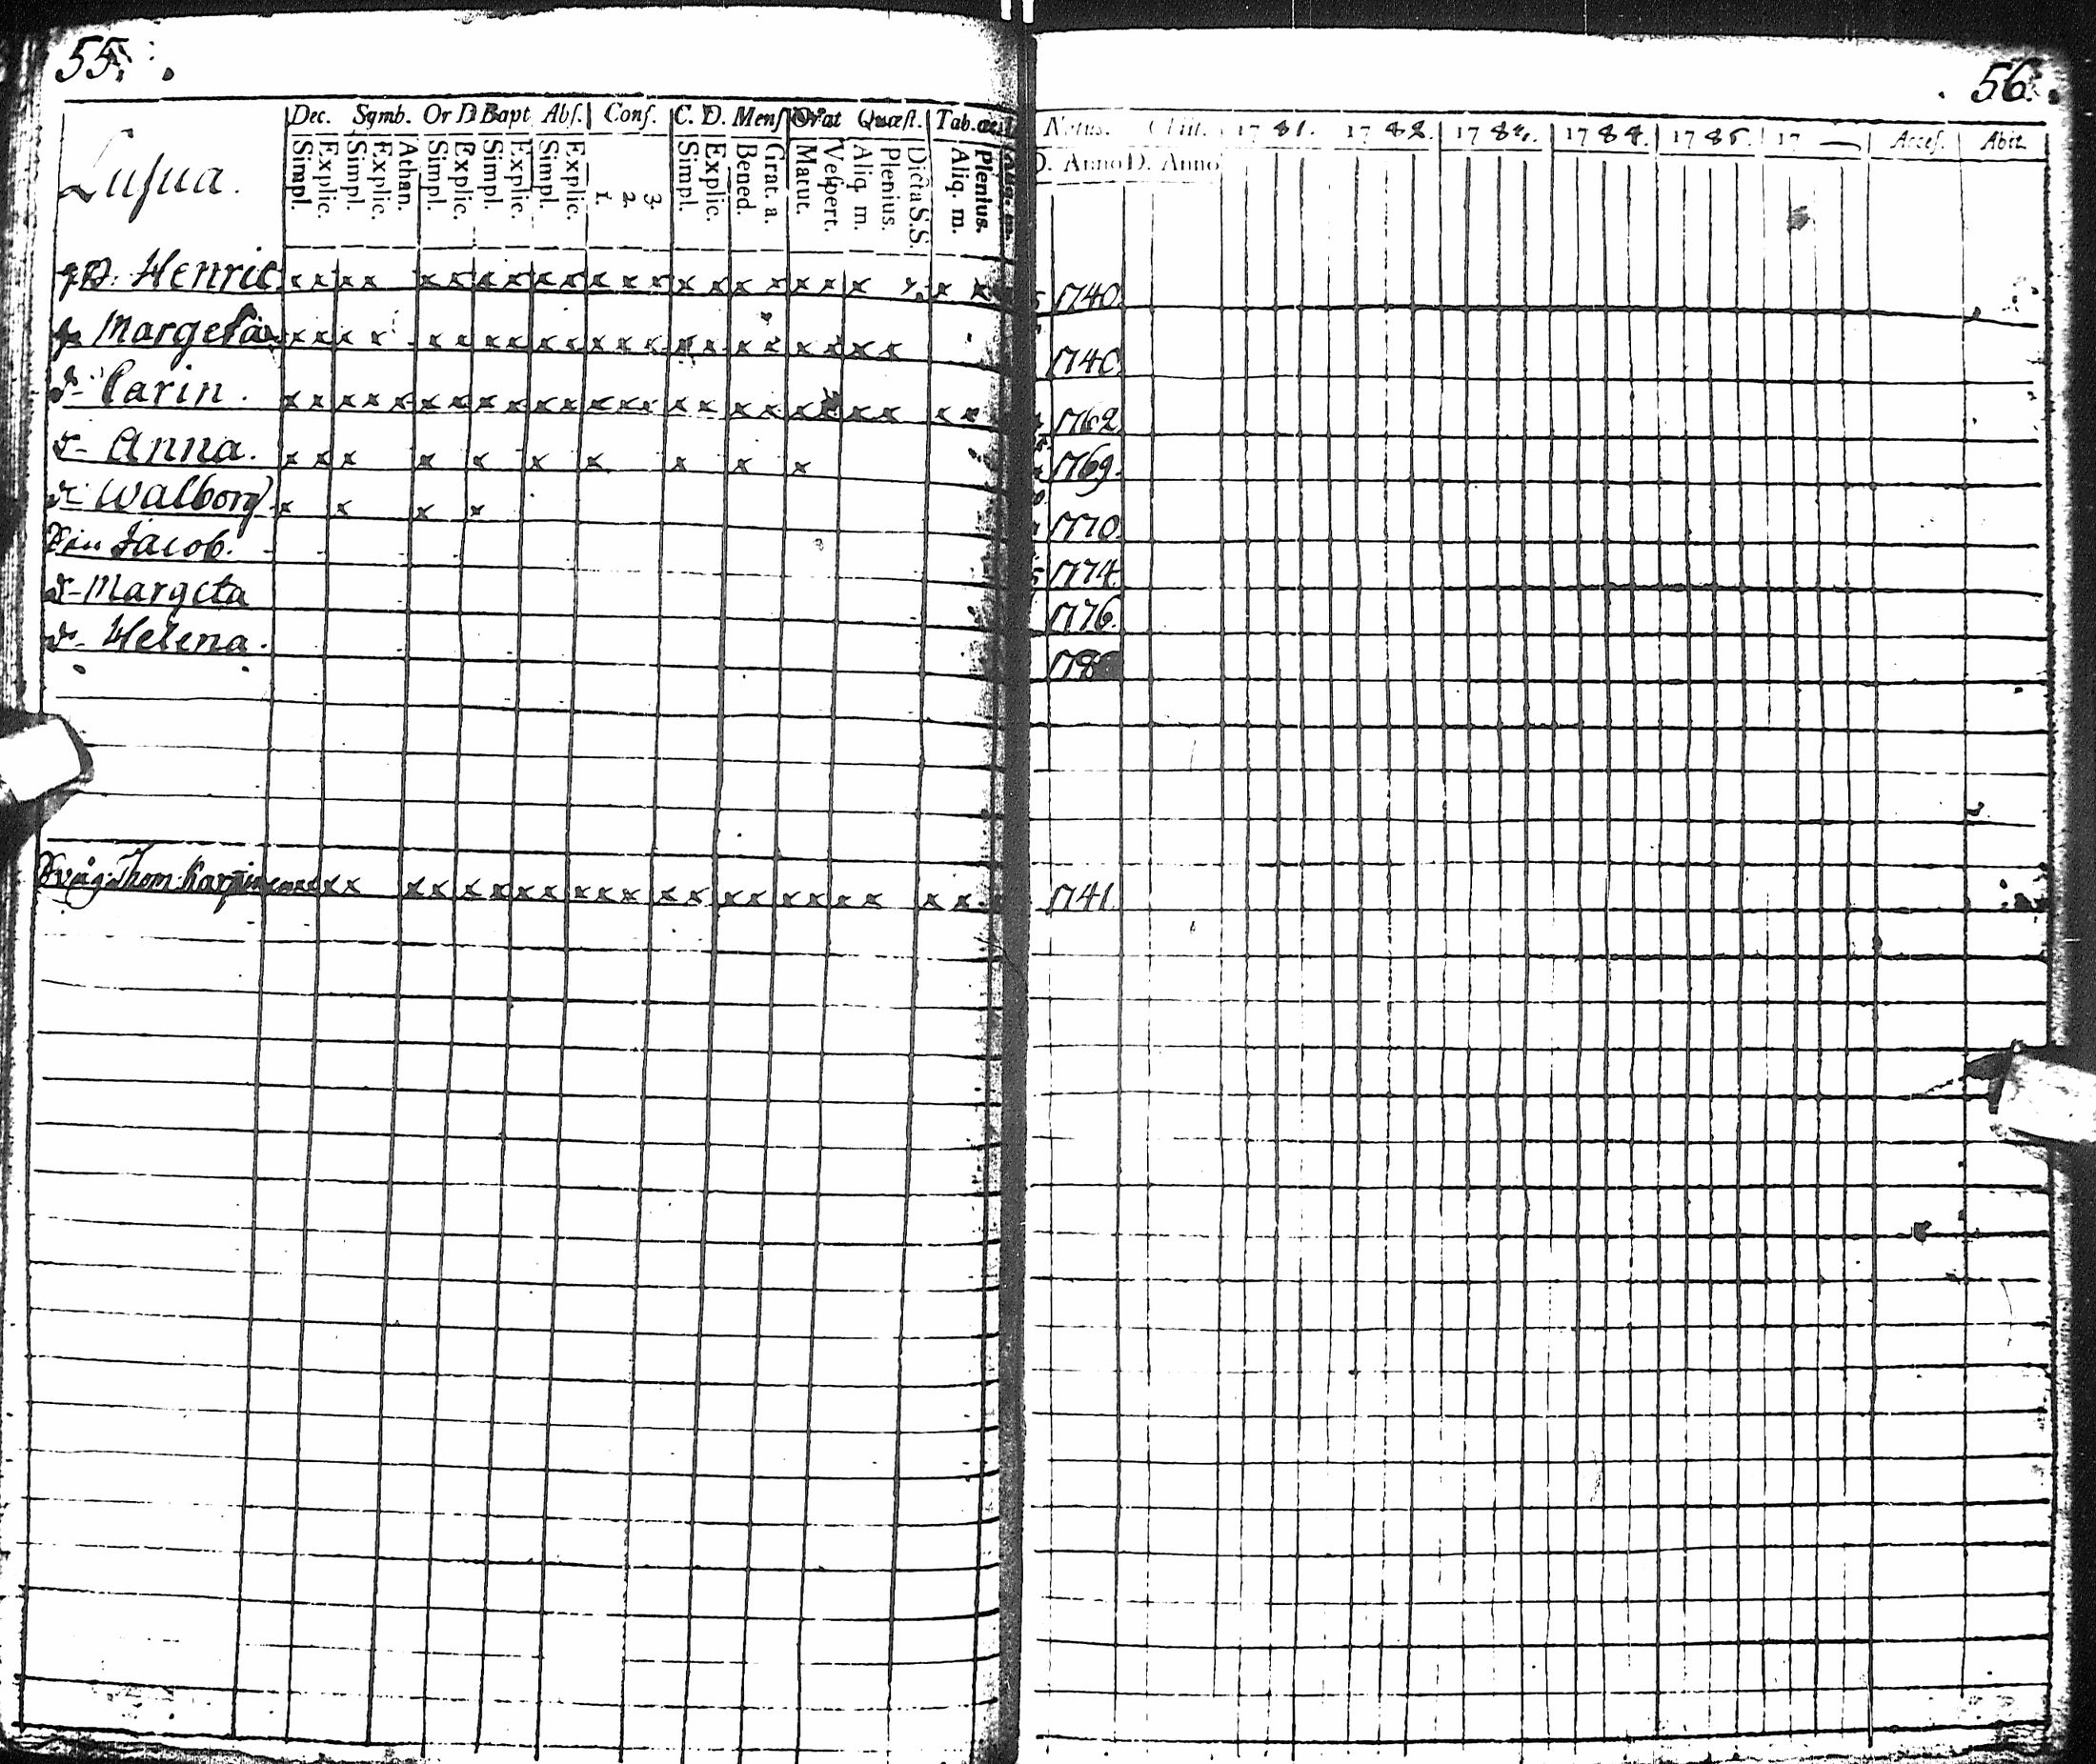 55.
Dec. Symb. Or D Bapt Abſ. Conf. C. D. Menſ Orat Quæſt. Tab. œc.
Lusua.
Simpl. Explic. Simpl. Explic. Athan. Simpl. Explic. Simpl. Explic. Simpl. Explic. 1. 2. 3. Simpl. Explic. Bened. Grat. a. Matut. Veſpert. Aliq. m. Plenius. Dicta S.S. Aliq. m. Plenius.
Henric x x x x x x x x x x x x x x x x x x x x x x x
Margeta x x x x x x x x x x x x x x x x x x x x x
d- Carin. x x x x x x x x x x x x x x x x x x x x x x x x
d- Anna. x x x x x x x x x x
d- Walborg x x x x
Jacob.
d- Margeta
d- Helena.
Thom. x x x x x x x x x x x x x x x x x x x x x x
56.
Natus. 1781. 1782. 178 1784. 1785. 17 — Acceſ. Abit.
D. Anno D. Anno
1740.
1740.
1762
1769.
1770.
1774.
1776.
178
1741.